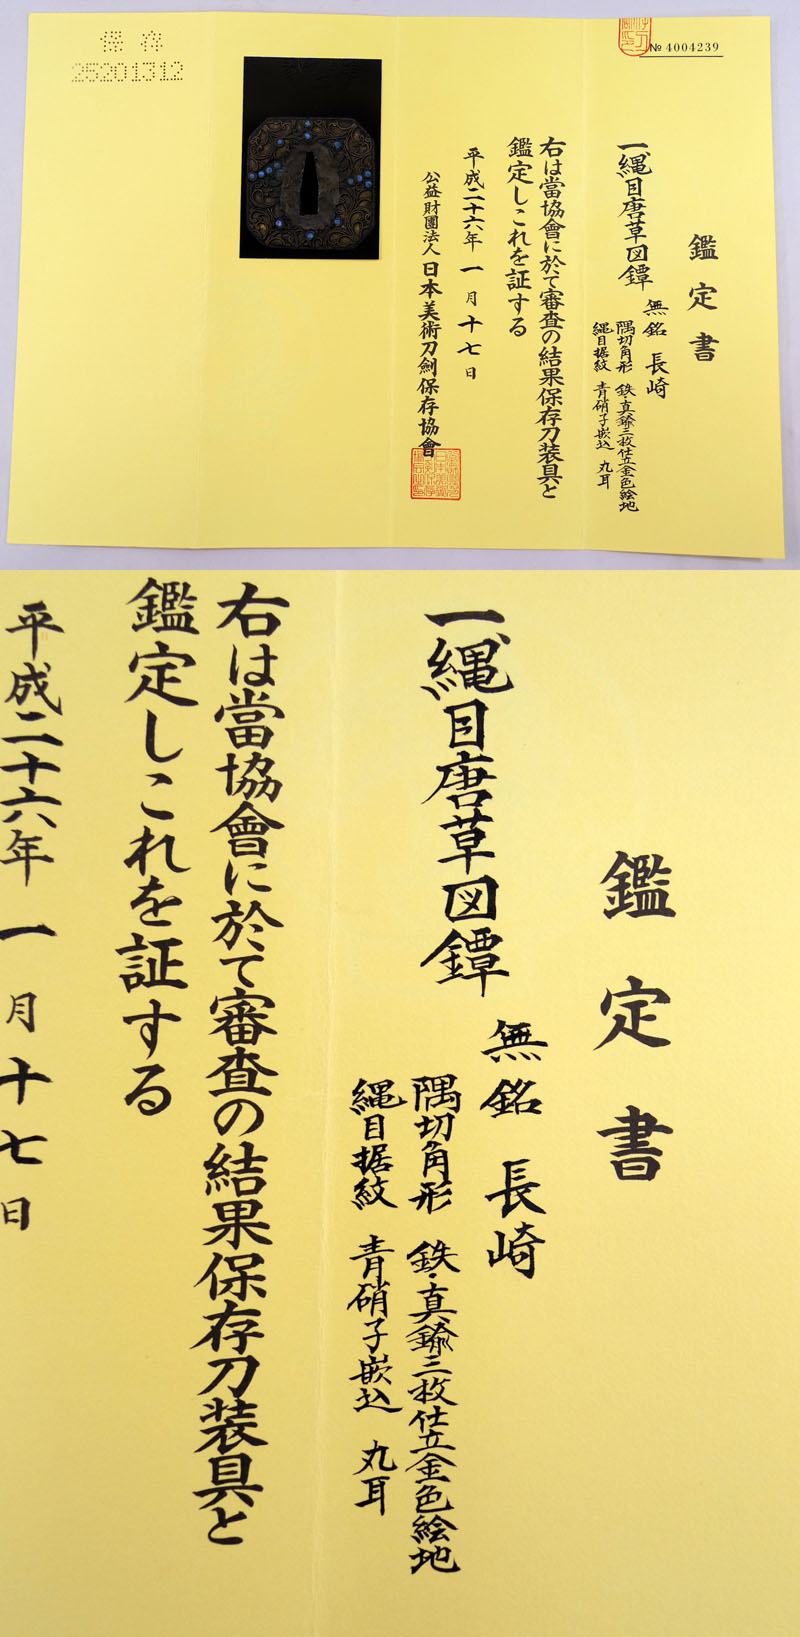 保存
25201312
№ 4004239
鑑定書
一縄目唐草図鐔
無銘 長崎
隅切角形 鉄・真鍮三枚仕立金色絵地
縄目据紋 青硝子嵌込 丸耳
右は當協會に於て審査の結果保存刀装具と
鑑定しこれを証する
平成二十六年 一月十七日
公益財團法人 日本美術刀劍保存協會
鑑定書
一縄目唐草図鐔
無銘 長崎
隅切角形 鉄・真鍮三枚仕立金色絵地
縄目据紋 青硝子嵌込 丸耳
右は當協會に於て審査の結果保存刀装具と
鑑定しこれを証する
平成二十六年 一月十七日